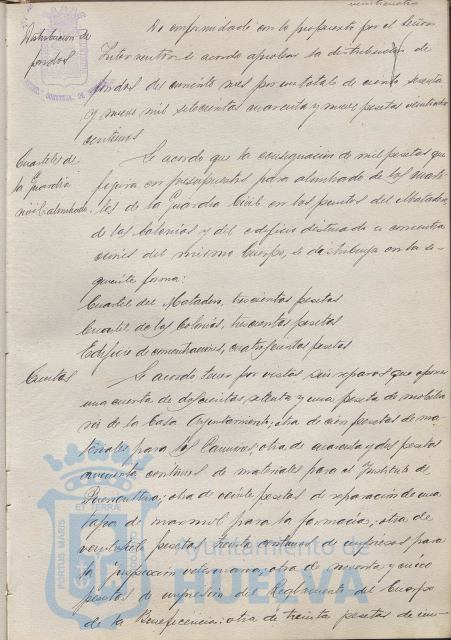 veinticuatro
Distribución de
fondos
De conformidad con lo propuesto por el Señor
Interventor se acordó aprobar la distribución de
fondos del corriente mes por un total de ciento sesenta
y nueve mil setecientas cuarenta y nueve pesetas veinticinco
centimos
Cuarteles de
la Guardia
civil alumbrado
Se acordó que la consignación de mil pesetas que
figura en presupuestos para alumbrado de los cuarte-
les de la Guardia Civil en los puntos del Matadero,
de las Colonias y del edificio destinado a concentra
ciones del mismo Cuerpo, se distribuya en la si-
guiente forma:
Cuartel del Matadero, trescientas pesetas
Cuartel de las Colonias, trescientas pesetas
Edificio de concentraciones, cuatrocientas pesetas
Cuentas
Se acordó tener por vistas sin reparos que oponer
una cuenta de doscientas setenta y una peseta de mobilia
rio de la Casa Ayuntamiento; otra de cien pesetas de ma-
teriales para los Caminos; otra de cuarenta y dos pesetas
cincuenta centimos de materiales para el Instituto de
Puericultura; otra de veinte pesetas de reparación de una
tapa de marmol para la farmacia; otra de
veintisiete pesetas treinta centimos de impresos para
la inspección veterinaria; otra de noventa y cinco
pesetas de impresión del Reglamento del Cuerpo
de la Beneficencia; otra de treinta pesetas de
PORTUS MARIS
ET TERRAE
Ayuntamiento de
HUELVA